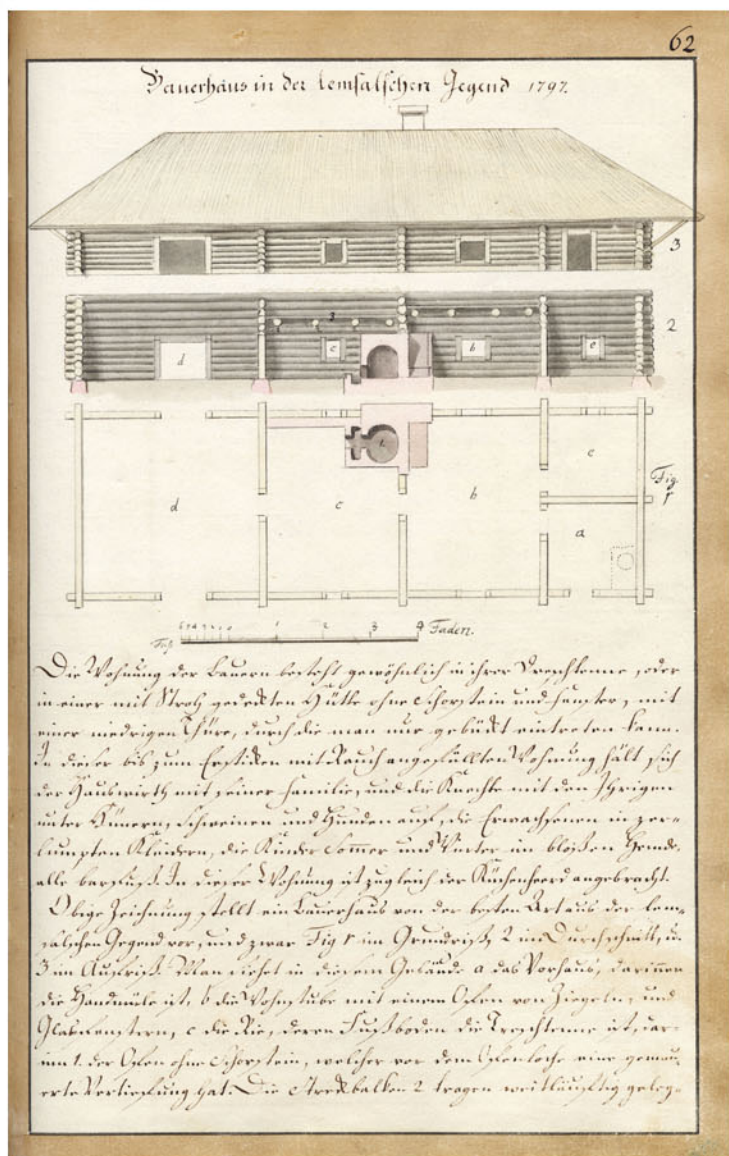 62
Bauerhaus in der Lemsalschen Gegend 1797.
3
3
2
d
c
b
e
1.
e
Fig.
1
d
c
b
a
6 5 4 3 2 1 0 1 2 3 4 Faden.
Fuß
Die Wohnung der Bauern besteht gewöhnlich in ihrer Dreschtenne, oder
in einer mit Stroh gedeckten Hütte ohne Schorstein und Fenster, mit
einer niedrigen Thüre, durch die man nur gebückt eintreten kann.
In dieser bis zum Ersticken mit Rauch angefüllten Wohnung hält sich
der Hauswirth mit seiner Familie, und die Knechte mit den Ihrigen
unter Hünern, Schweinen und Hunden auf, die Erwachsenen in zer-
lumpten Kleidern, die Kinder Sommer und Winter im bloßen Hemde,
alle barfuß. In dieser Wohnung ist zugleich der Küchenheerd angebracht.
Obige Zeichnung stellt ein Bauerhaus von der besten Art aus der Lem-
salschen Gegend vor, und zwar Fig 1 im Grundriß, 2 im Durchschnitt, u.
3 im Aufriß. Man siehet in diesem Gebäude a das Vorhaus, darinnen
die Handmüle ist, b die Wohnstube mit einem Ofen von Ziegeln, und
Glasfenstern, c die Rie, deren Fußboden die Dreschtenne ist, dar-
inn 1. der Ofen ohne Schorstein, welcher vor dem Ofenloche eine gemau-
erte Vertiefung hat. Die Streckbalken 2 tragen weitläuftig geleg-